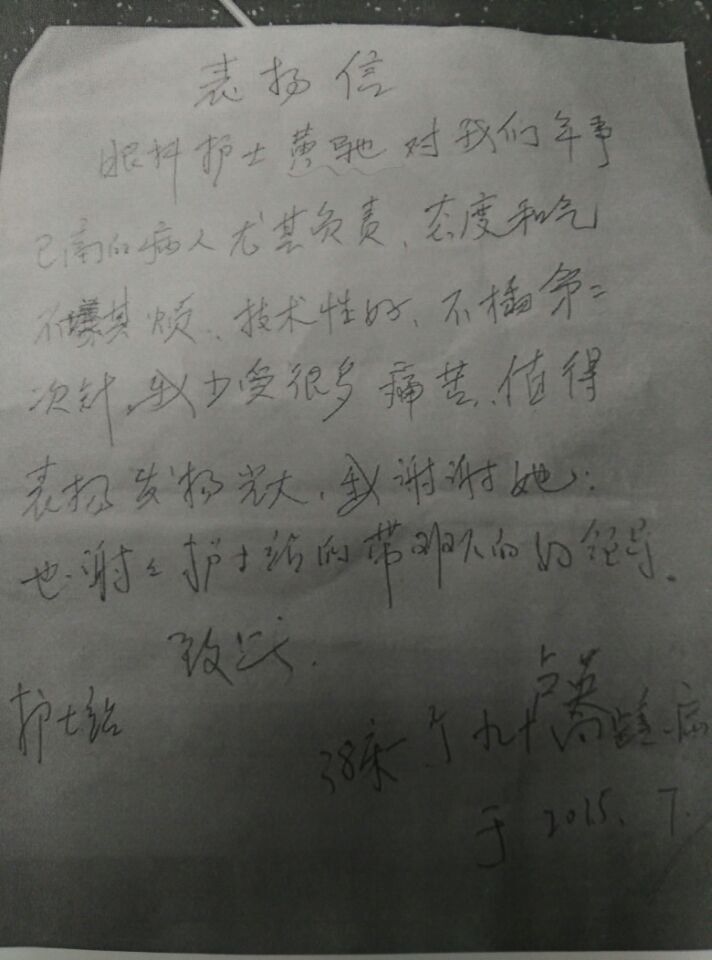 表扬信
眼科护士黄驰对我们年事
已高的病人尤其负责、态度和气
不嫌其烦、技术性好、不插第二
次针,我少受很多痛苦、值得
表扬发扬光大,我谢谢她:
也谢谢护士站的带班的领导。
致
护士站
38床 个九十高 病
于 2015. 7.